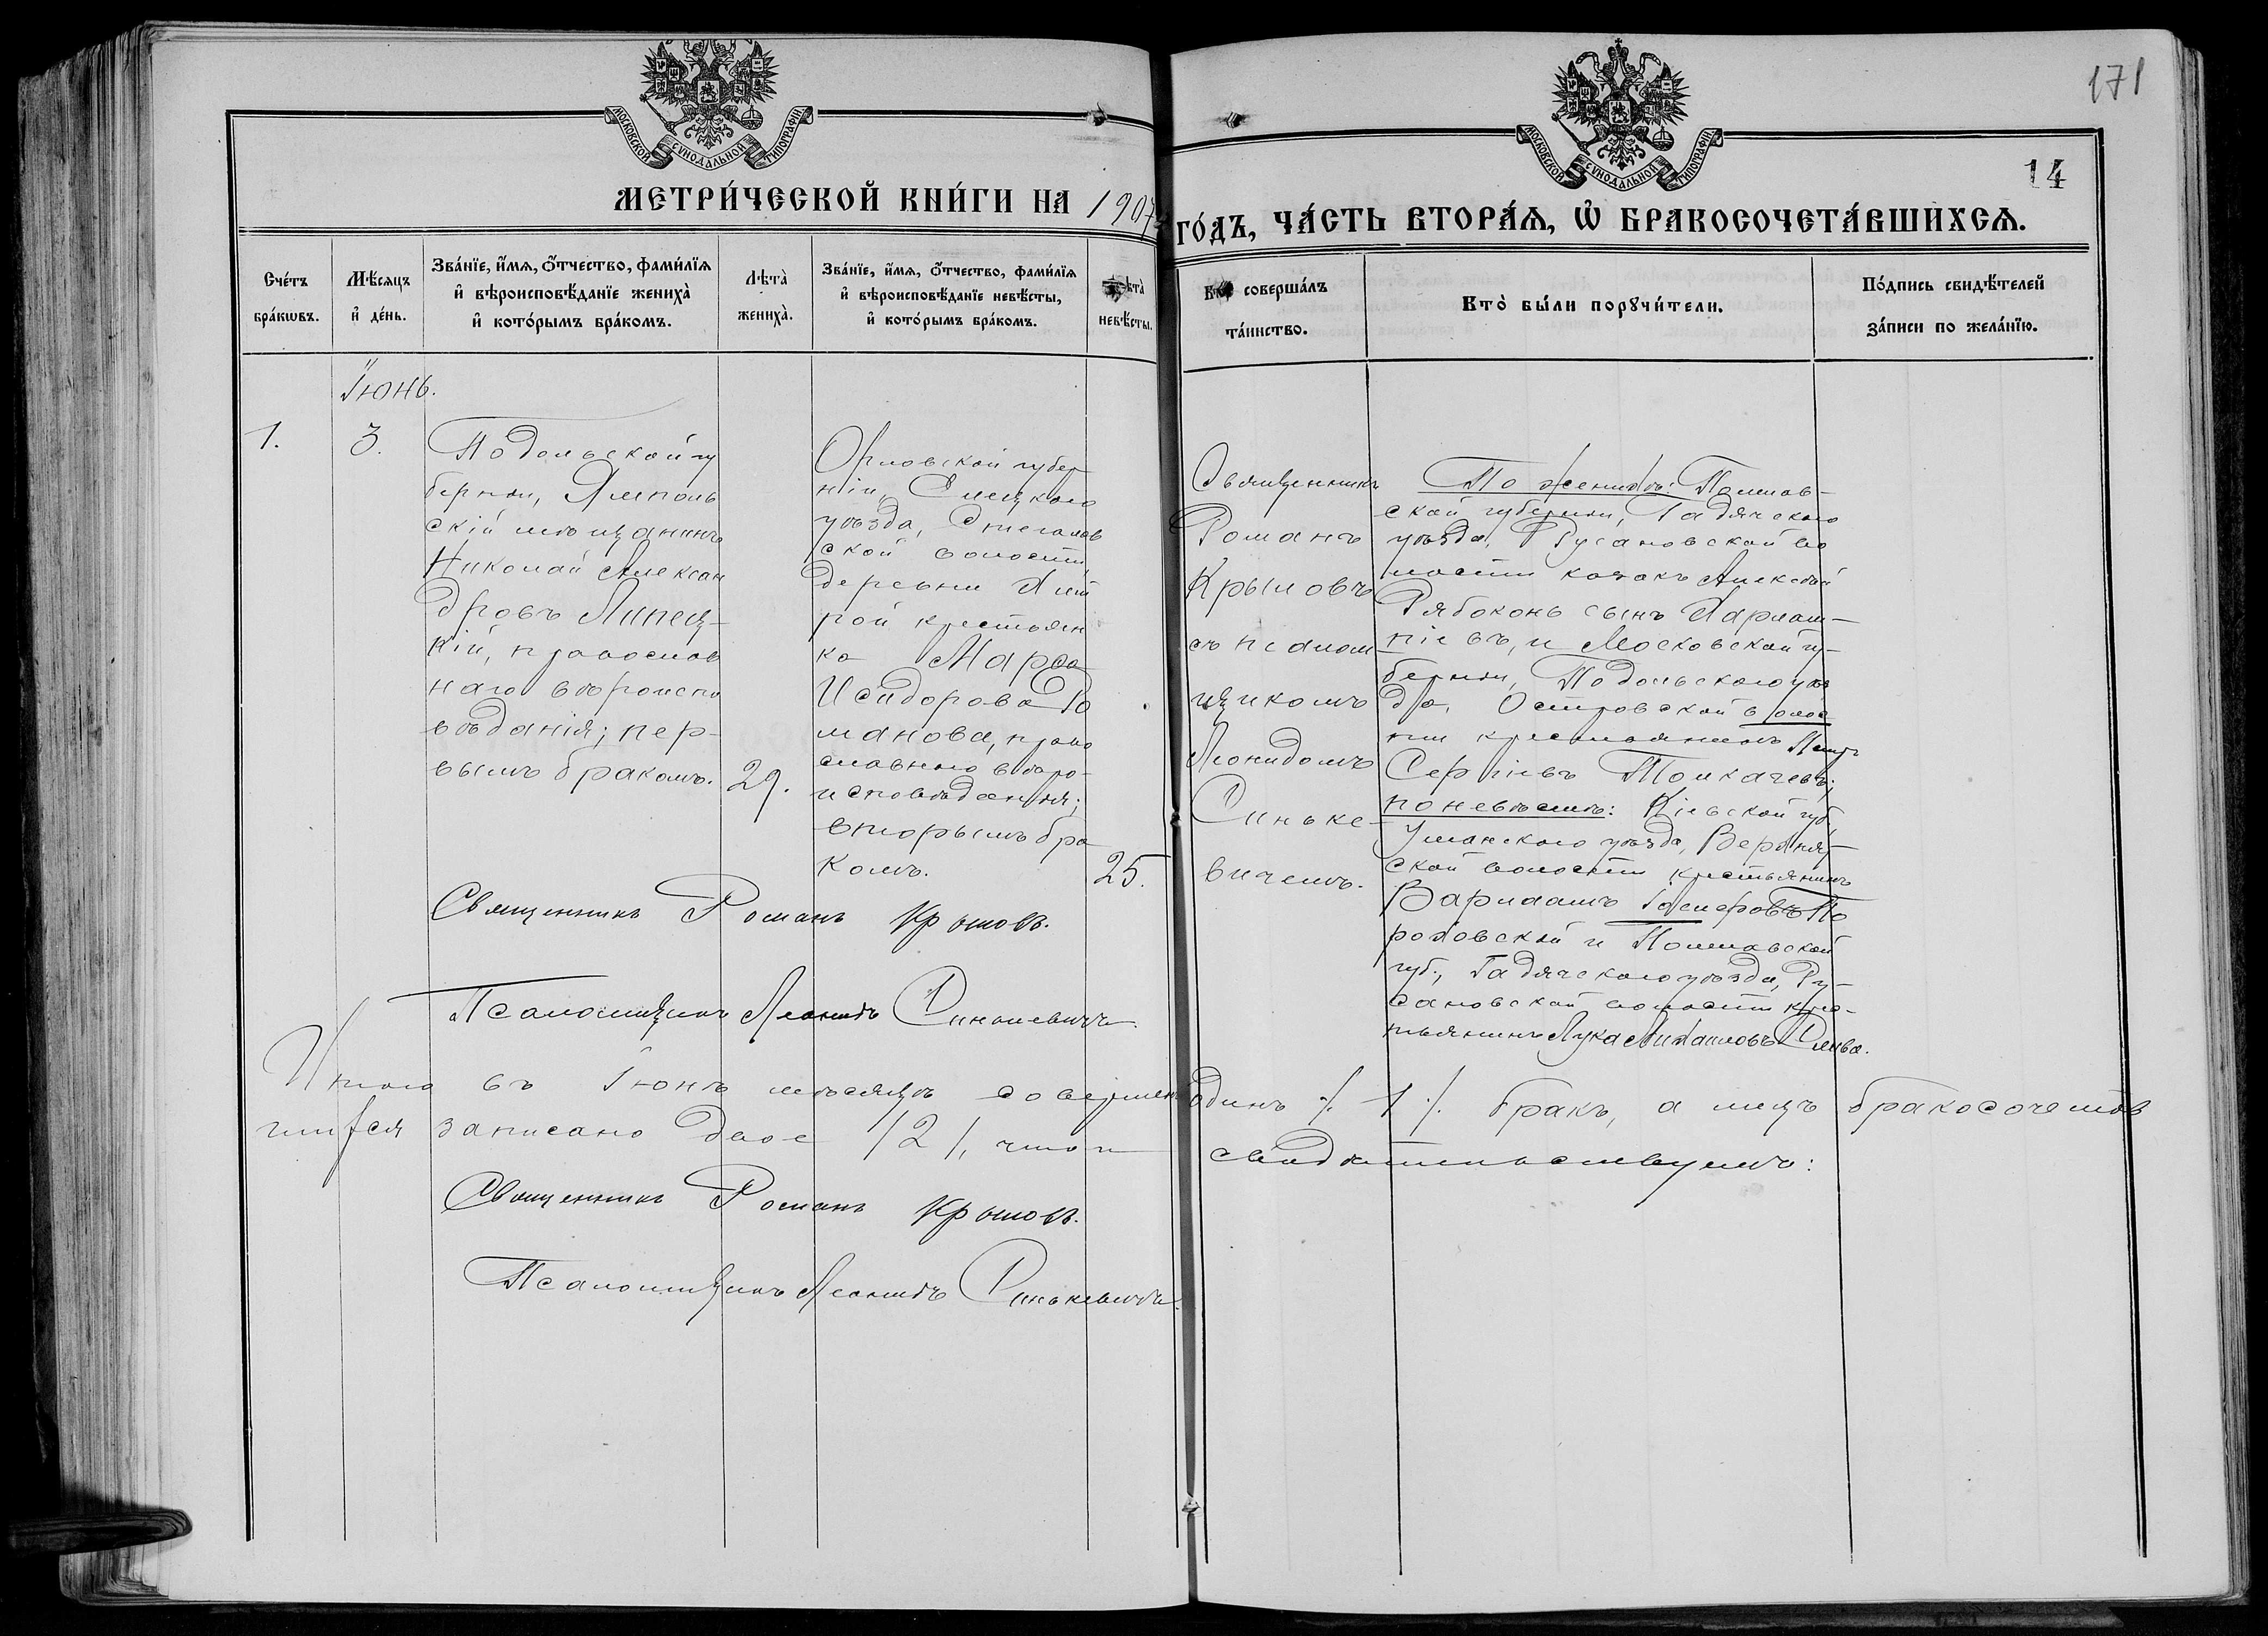 171
14
МОСКОВСКОЙ СѴНОДАЛЬНОЙ ТИПОГРАФІИ
МОСКОВСКОЙ СѴНОДАЛЬНОЙ ТИПОГРАФІИ
МЕТРИ́ЧЕСКОЙ КНИ́ГИ НА 1907
ГО́ДЪ, ЧА́СТЬ ВТОРА́Я, Ѽ БРАКОСОЧЕТА́ВШИХСЯ.
Сче́тъ
бра́кѡвъ.
Мѣ́сяцъ
и҆ де́нь.
Зва́нїе, и҆́мѧ, ѻ҆́тчество, фами́лїѧ
и҆ вѣроисповѣ́данїе жениха̀
и҆ кото́рымъ бра́комъ.
Лѣта̀
жениха̀.
Зва́нїе, и҆́мѧ, ѻ҆́тчество, фами́лїѧ
и҆ вѣроисповѣ́данїе невѣ́сты,
и҆ кото́рымъ бра́комъ.
Лѣта̀
невѣ́сты.
Кто̀ соверша́лъ
та́инство.
Кто̀ бы́ли порꙋчи́тели.
По́дпись свидѣ́телей
за́писи по жела́нїю.
Іюнь.
1.
3.
Подольской гу
берніи, Ямполь
скій мѣщанинъ
Николай Алексан
дровъ Липец-
кій, православ
наго вѣроиспо
вѣданія; пер-
вымъ бракомъ.
29.
Орловской губер
ніи, Елецкаго
уѣзда, Стегалов
ской волости,
деревни Хит
рой крестьян
ка Марѳа
Исидорова Ро
манова, право
славнаго вѣро-
исповѣданія;
вторымъ бра
комъ.
25.
Священникъ
Романъ
Крыловъ
съ псалом
щикомъ
Леонидомъ
Синьке-
вичемъ.
По женихѣ: Полтав-
ской губерніи, Гадячскаго
уѣзда, Русановской во
лости козакъ Алексѣй
Рябоконь сынъ Харлам-
піевъ, и Московской гу-
берніи, Подольскаго уѣз
да, Островской волос
ти крестьянинъ Петръ
Сергіевъ Толкачевъ;
по невѣстѣ: Кіевской губ.,
Уманскаго уѣзда, Верхняч-
ской волости крестьянинъ
Варлаамъ По
роховскій и Полтавской
губ., Гадячскаго уѣзда, Ру-
сановской волости крес-
тьянинъ Лука Михаиловъ Слива.
Священникъ Романъ Крыловъ.
Псаломщикъ Леонидъ Синькевичъ.
Итого въ Іюнѣ мѣсяцѣ совершенъ одинъ /. 1 /. бракъ, а лицъ бракосочетав
шихся записано двое /2/, что и свидѣтельствуемъ:
Священникъ Романъ Крыловъ.
Псаломщикъ Леонидъ Синькевичъ.